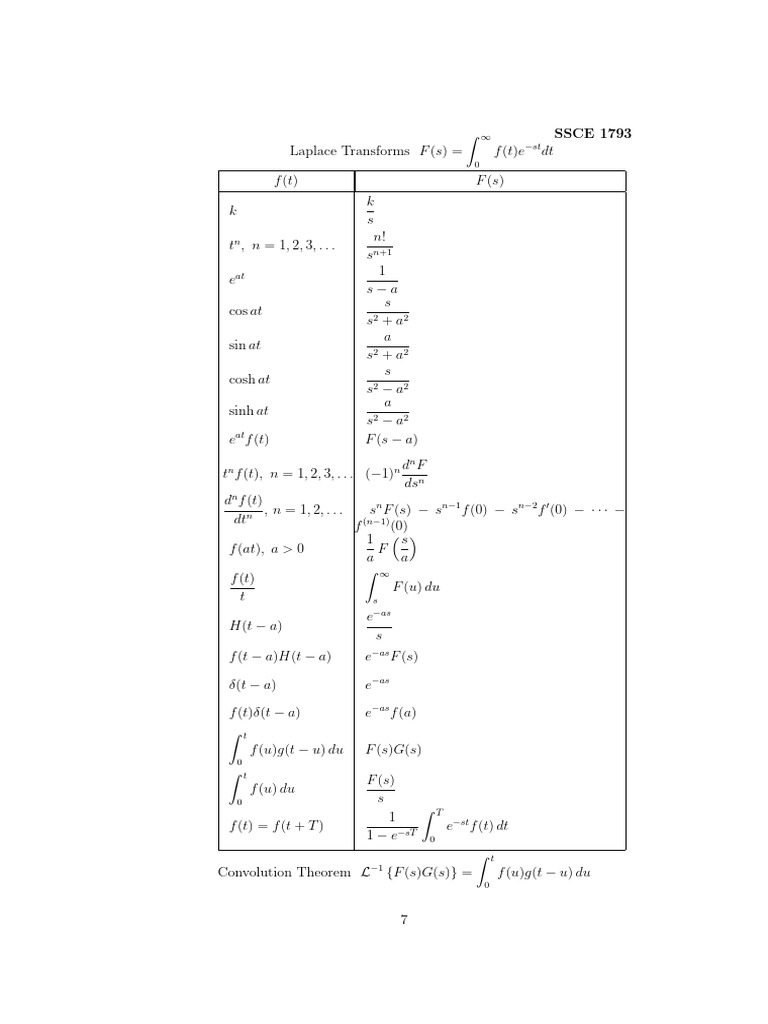 SSCE 1793
Laplace Transforms F(s) = ∫₀^∞ f(t)e^{−st}dt
f(t) F(s)
k k/s
tⁿ, n = 1, 2, 3, . . . n!/s^{n+1}
e^{at} 1/(s − a)
cos at s/(s² + a²)
sin at a/(s² + a²)
cosh at s/(s² − a²)
sinh at a/(s² − a²)
e^{at}f(t) F(s − a)
tⁿf(t), n = 1, 2, 3, . . . (−1)ⁿ dⁿF/dsⁿ
dⁿf(t)/dtⁿ, n = 1, 2, . . . sⁿF(s) − s^{n−1}f(0) − s^{n−2}f′(0) − · · · −
f^{(n−1)}(0)
f(at), a > 0 1/a F(s/a)
f(t)/t ∫ₛ^∞ F(u) du
H(t − a) e^{−as}/s
f(t − a)H(t − a) e^{−as}F(s)
δ(t − a) e^{−as}
f(t)δ(t − a) e^{−as}f(a)
∫₀^t f(u)g(t − u) du F(s)G(s)
∫₀^t f(u) du F(s)/s
f(t) = f(t + T) 1/(1 − e^{−sT}) ∫₀^T e^{−st}f(t) dt
Convolution Theorem ℒ^{−1} {F(s)G(s)} = ∫₀^t f(u)g(t − u) du
7